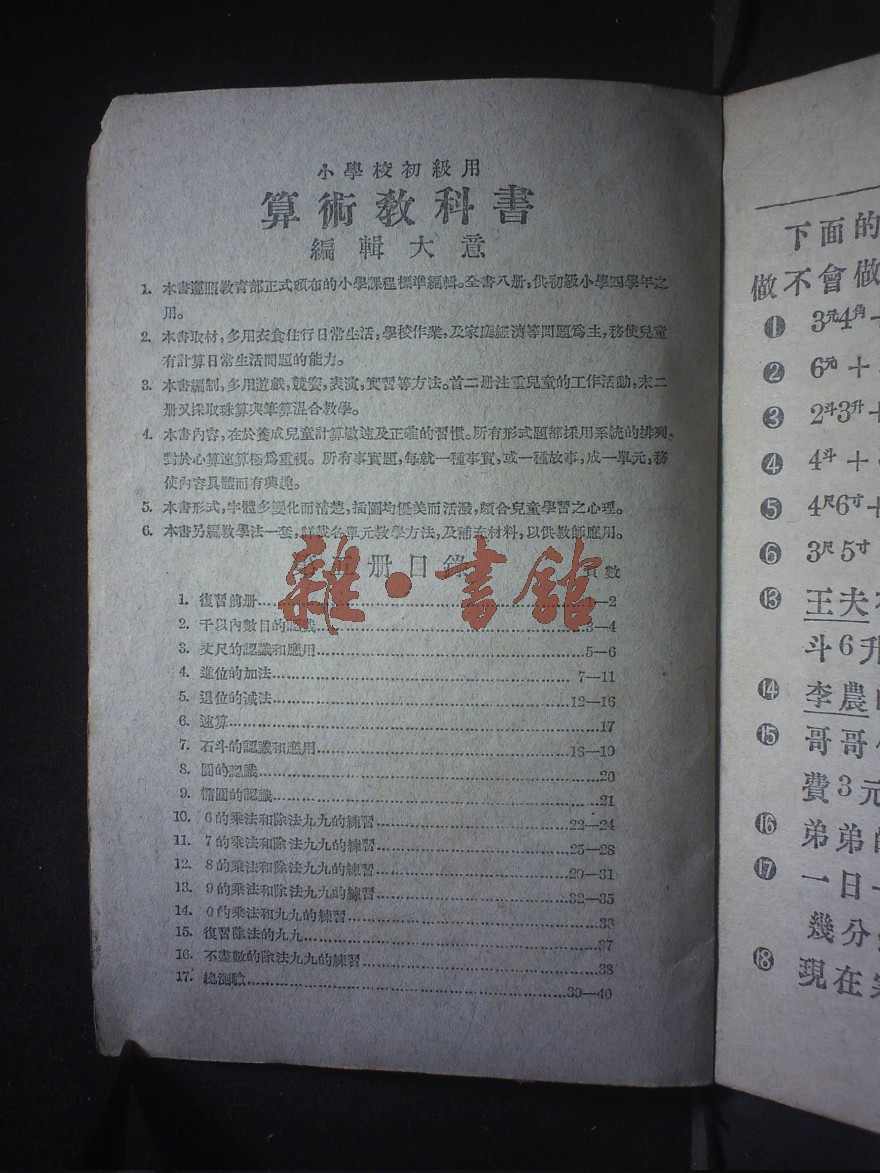 小學校初級用
算術教科書
編輯大意
1. 本書遵照教育部正式頒布的小學課程標準編輯。全書八册，供初級小學四學年之
用。
2. 本書取材，多用衣食住行日常生活，學校作業，及家庭經濟等問題爲主，務使兒童
有計算日常生活問題的能力。
3. 本書編制，多用遊戲，競賽，表演，實習等方法。首二册注重兒童的工作活動，末二
册又採取珠算與筆算混合教學。
4. 本書內容，在於養成兒童計算敏速及正確的習慣。所有形式題都採用系統的排列，
對於心算速算極爲重視。所有事實題，每就一種事實，或一種故事，成一單元，務
使內容具體而有興趣。
5. 本書形式，字體多變化而清楚，插圖均優美而活潑，頗合兒童學習之心理。
6. 本書另編教學法一套，詳載各單元教學方法，及補充材料，以供教師應用。
第五册目錄 頁數
雜·書館
1. 復習前册 1—2
2. 千以內數目的認識 3—4
3. 丈尺的認識和應用 5—6
4. 進位的加法 7—11
5. 退位的減法 12—16
6. 速算 17
7. 石斗的認識和應用 18—19
8. 圓的認識 20
9. 橢圓的認識 21
10. 6的乘法和除法九九的練習 22—24
11. 7的乘法和除法九九的練習 25—28
12. 8的乘法和除法九九的練習 29—31
13. 9的乘法和除法九九的練習 32—35
14. 0的乘法和九九的練習 36
15. 復習除法的九九 37
16. 不盡數的除法九九的練習 38
17. 總測驗 39—40
下面的
做不會做
❶ 3元4角＋
❷ 6元＋
❸ 2斗3升＋
❹ 4斗＋
❺ 4尺6寸＋
❻ 3尺5寸
⓭ 王夫
斗6升
⓮ 李農
⓯ 哥哥
費3元
⓰ 弟弟
⓱ 一日
幾分
⓲ 現在